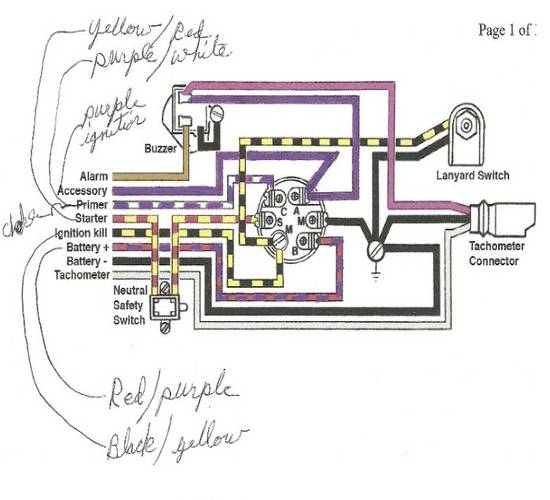 yellow/red
Page 1 of
purple/white
purple
ignition
Buzzer
Lanyard Switch
Alarm
Accessory
Primer
Starter
Ignition kill
Battery +
Battery -
Tachometer
C
A
S
M
M
B
Tachometer
Connector
Neutral
Safety
Switch
Red/purple
Black/yellow